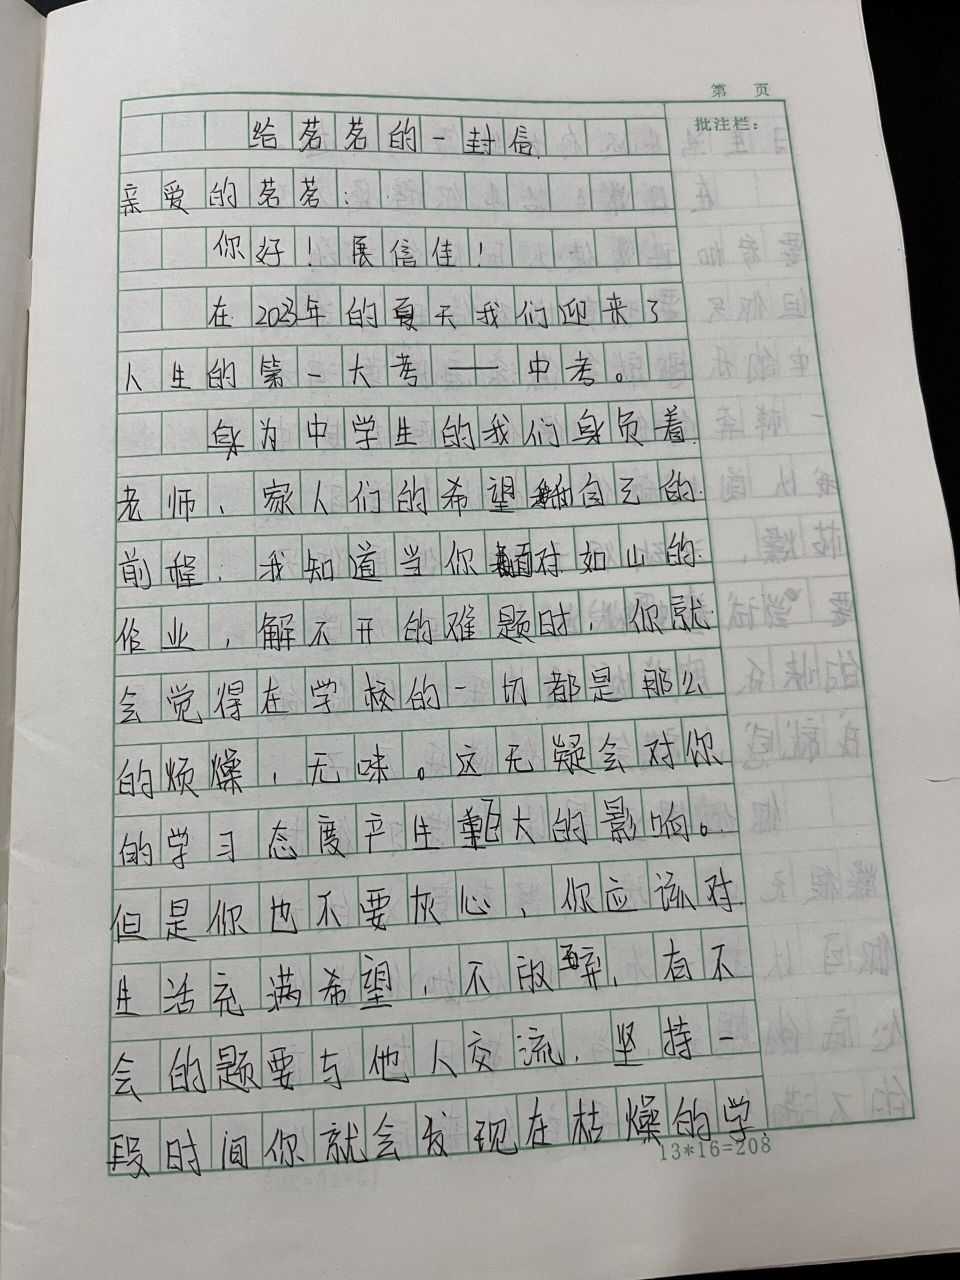 第 页
批注栏：
给茗茗的一封信
亲爱的茗茗：
你好！展信佳！
在2023年的夏天我们迎来了
人生的第一大考——中考。
身为中学生的我们身负着
老师、家人们的希望和自己的
前程，我知道当你面对如山的
作业，解不开的难题时，你就
会觉得在学校的一切都是那么
的烦燥，无味。这无疑会对你
的学习态度产生巨大的影响。
但是你也不要灰心，你应该对
生活充满希望，不放弃，有不
会的题要与他人交流，坚持一
段时间你就会发现在枯燥的学
13*16=208